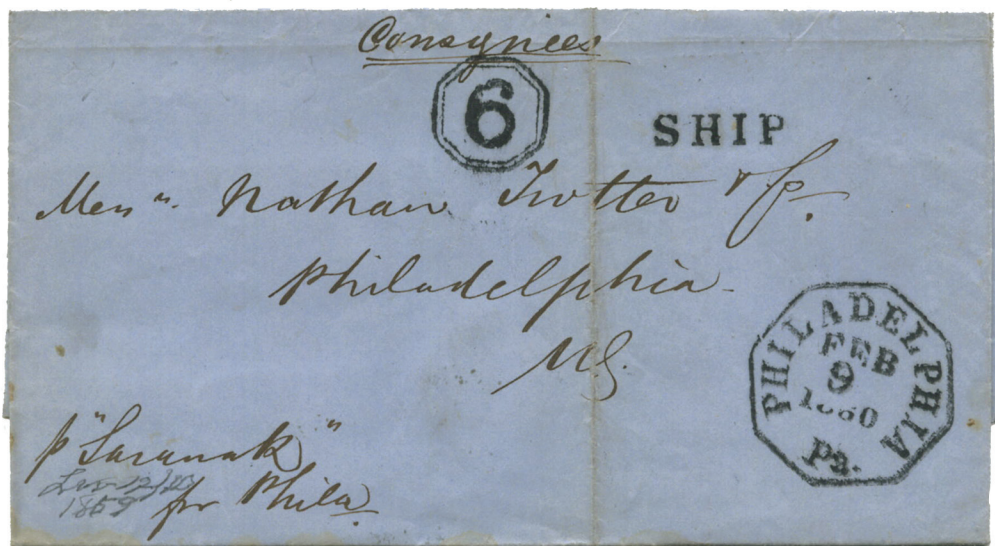 Consignees
6
SHIP
Mess rs. Nathan Trotter & Co.
Philadelphia
U.S.
PHILADELPHIA
FEB
9
1860
Pa.
p "Saranak"
for Phila
1859